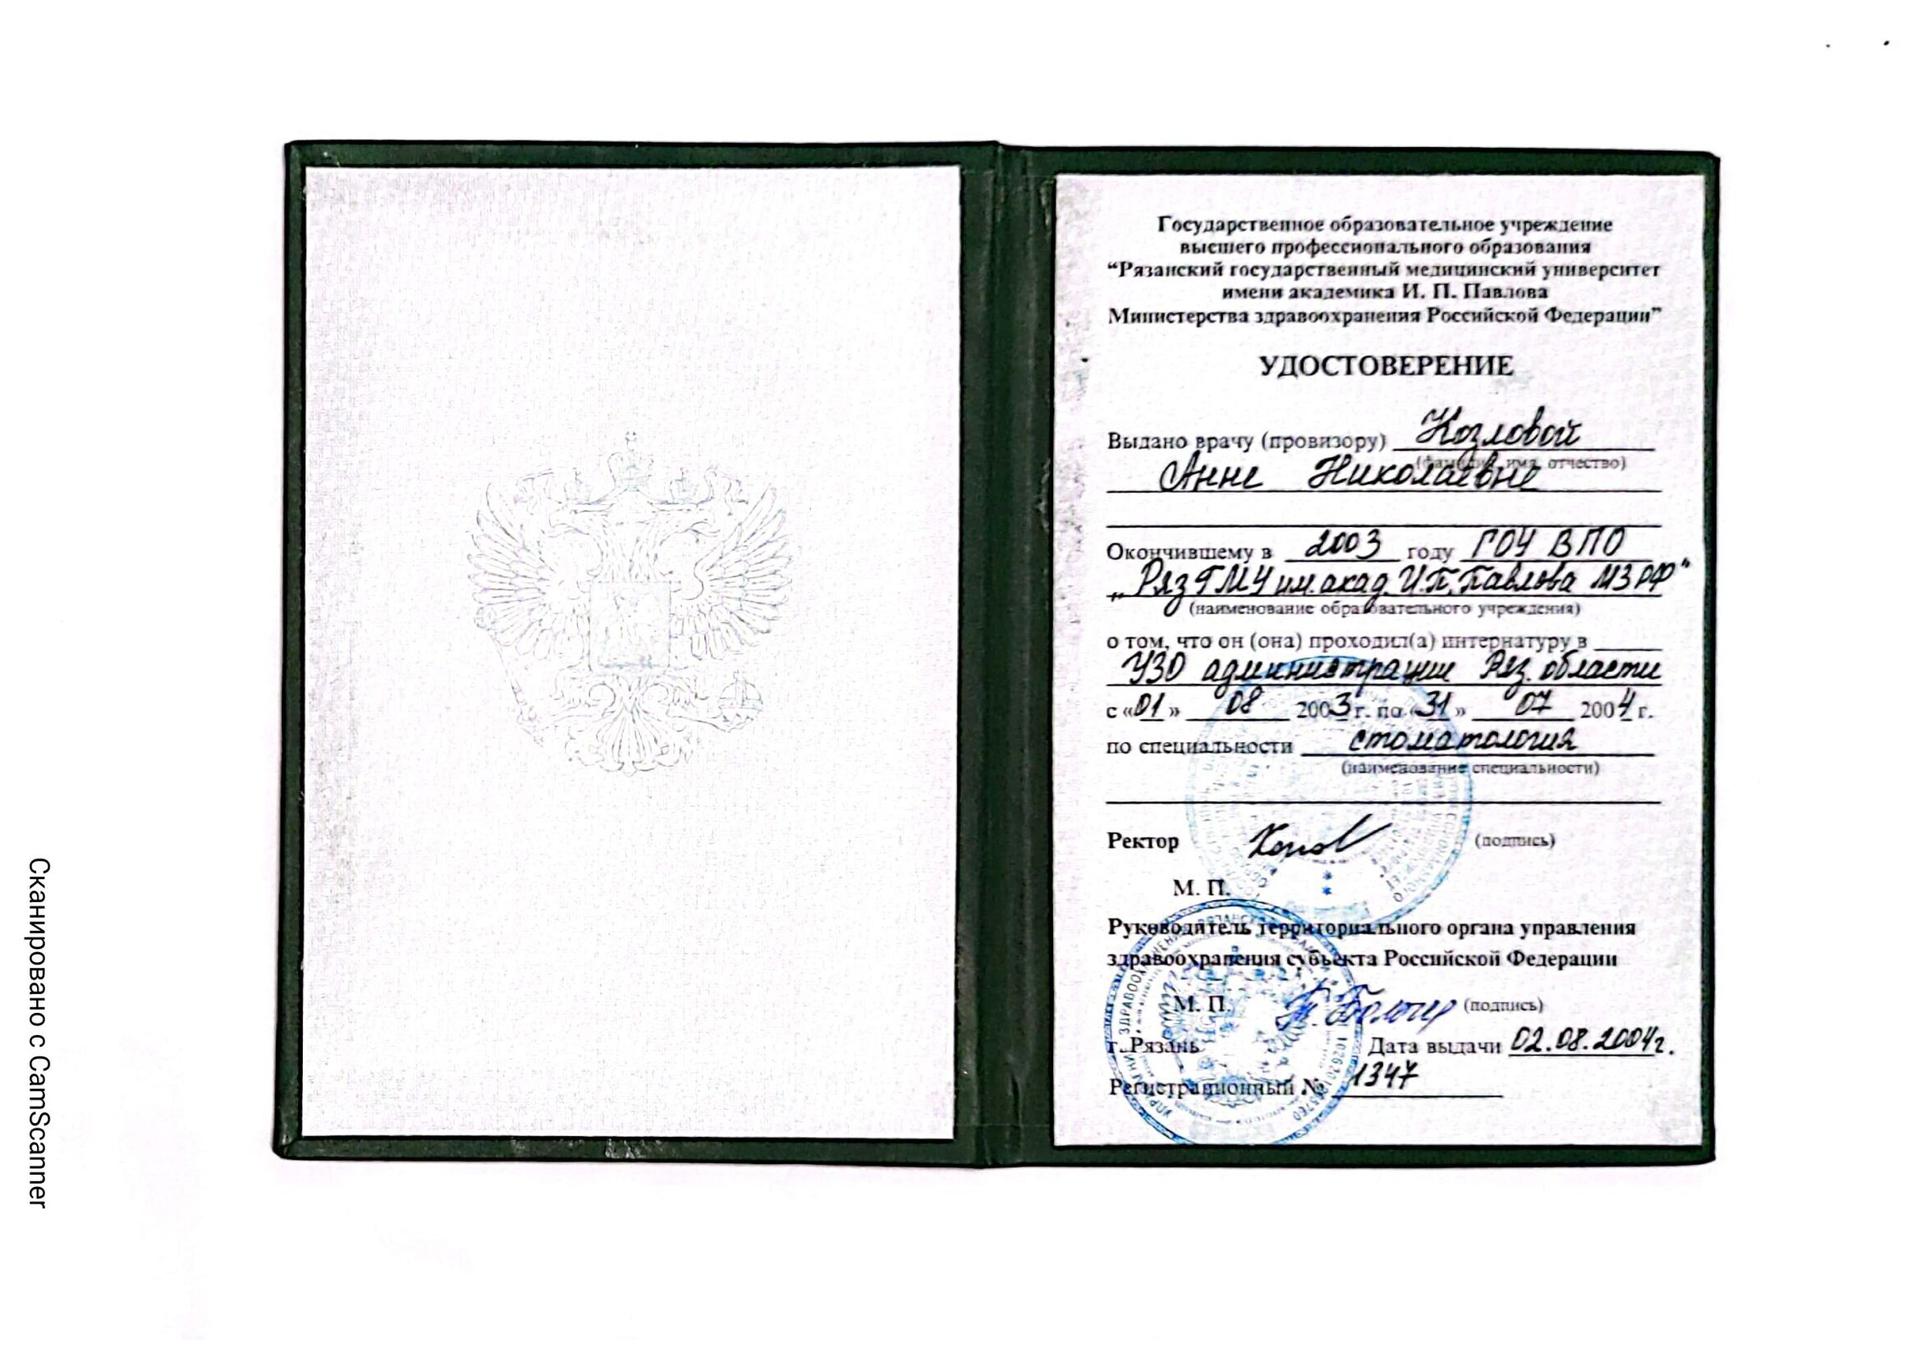 Государственное образовательное учреждение
высшего профессионального образования
“Рязанский государственный медицинский университет
имени академика И. П. Павлова
Министерства здравоохранения Российской Федерации”
УДОСТОВЕРЕНИЕ
Выдано врачу (провизору) Козловой
(фамилия, имя, отчество)
Анне Николаевне
Окончившему в 2003 году ГОУ ВПО
„РязГМУ им. акад. И.П. Павлова МЗ РФ"
(наименование образовательного учреждения)
о том, что он (она) проходил(а) интернатуру в
УЗО администрации Ряз. области
с «01» 08 2003 г. по «31» 07 2004 г.
по специальности стоматология
(наименование специальности)
Ректор (подпись)
М. П.
Руководитель территориального органа управления
здравоохранения субъекта Российской Федерации
М. П. (подпись)
г. Рязань Дата выдачи 02.08.2004г.
Регистрационный № 1347
Сканировано с CamScanner